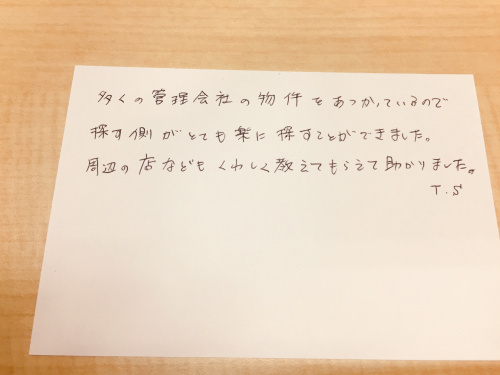 多くの管理会社の物件をあつかっているので
探す側がとても楽に探すことができました。
周辺の店などもくわしく教えてもらえて助かりました。
T.S